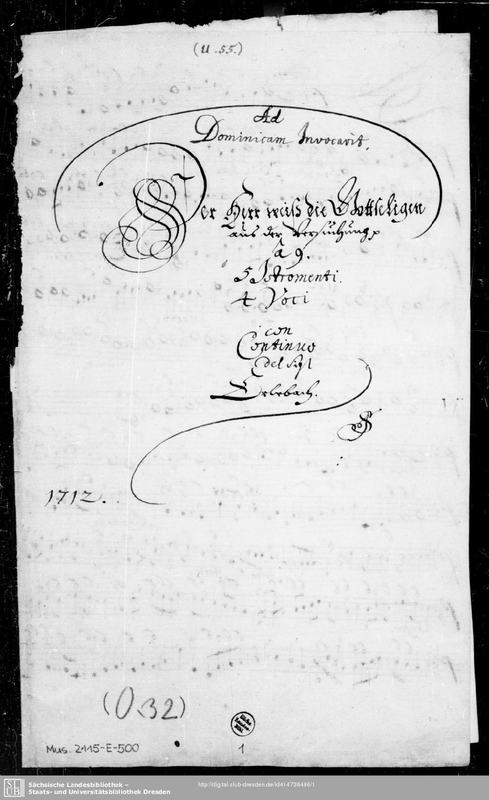 (U. 55.)
Ad
Dominicam Invocavit.
Der Herr weiß die Gottseligen
aus der Versuchung
à 9.
5 Stromenti.
4 Voci
con
Continuo
del Sigl
Erlebach.
1712.
(O.32)
Mus. 2115-E-500
1
SLUB
Sächsische Landesbibliothek –
Staats- und Universitätsbibliothek Dresden
http://digital.slub-dresden.de/id414736486/1